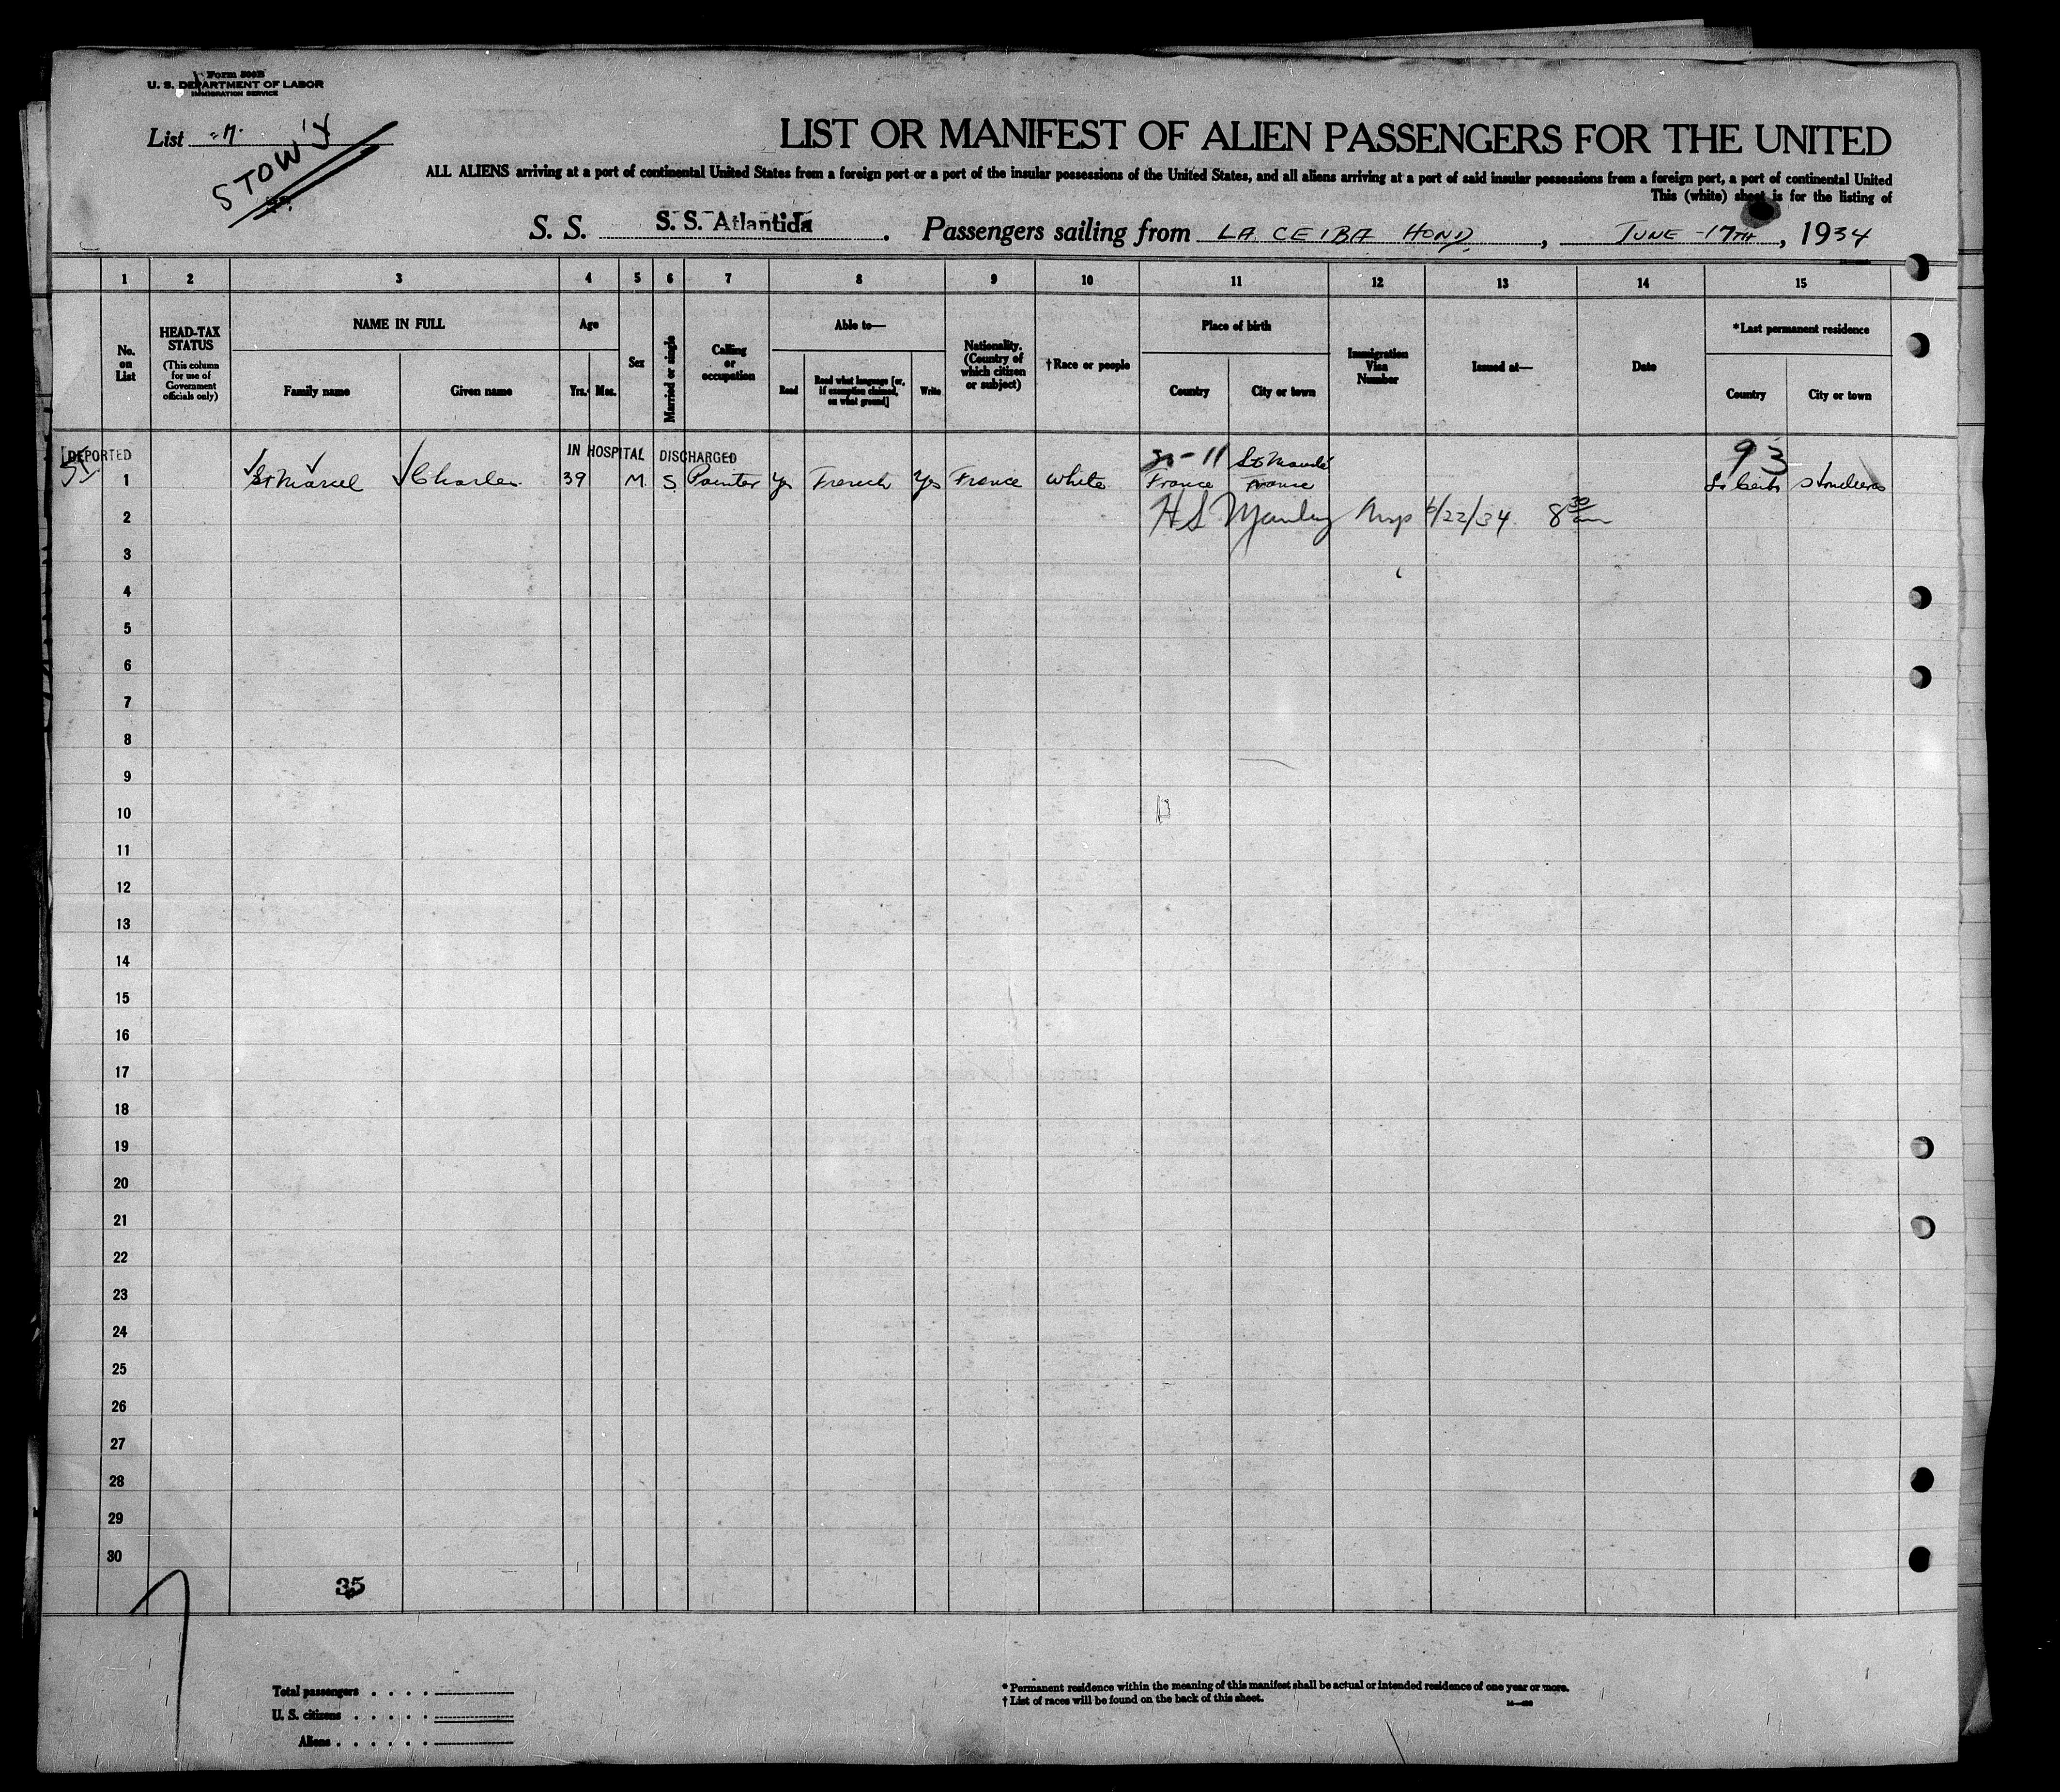 Form 500B
U. S. DEPARTMENT OF LABOR
IMMIGRATION SERVICE
List
STOW'Y
LIST OR MANIFEST OF ALIEN PASSENGERS FOR THE UNITED
ALL ALIENS arriving at a port of continental United States from a foreign port or a port of the insular possessions of the United States, and all aliens arriving at a port of said insular possessions from a foreign port, a port of continental United
This (white) sheet is for the listing of
S. S. S. S. Atlantida. Passengers sailing from LA CEIBA HOND, JUNE -17TH, 1934
1 2 3 4 5 6 7 8 9 10 11 12 13 14 15
No. on List
HEAD-TAX STATUS
(This column for use of Government officials only)
NAME IN FULL
Family name
Given name
Age
Yrs.
Mos.
Sex
Married or single
Calling or occupation
Able to—
Read
Read what language [or, if exemption claimed, on what ground]
Write
Nationality. (Country of which citizen or subject)
†Race or people
Place of birth
Country
City or town
Immigration Visa Number
Issued at—
Date
*Last permanent residence
Country
City or town
DEPORTED IN HOSPITAL DISCHARGED 93
1 St Marcel Charles 39 M S Painter Yes French Yes France White France France
2 6/22/34 8 30 am
3
4
5
6
7
8
9
10
11
12
13
14
15
16
17
18
19
20
21
22
23
24
25
26
27
28
29
30
35
Total passengers . . . .
U. S. citizens . . . . .
Aliens . . . . . .
* Permanent residence within the meaning of this manifest shall be actual or intended residence of one year or more.
† List of races will be found on the back of this sheet.